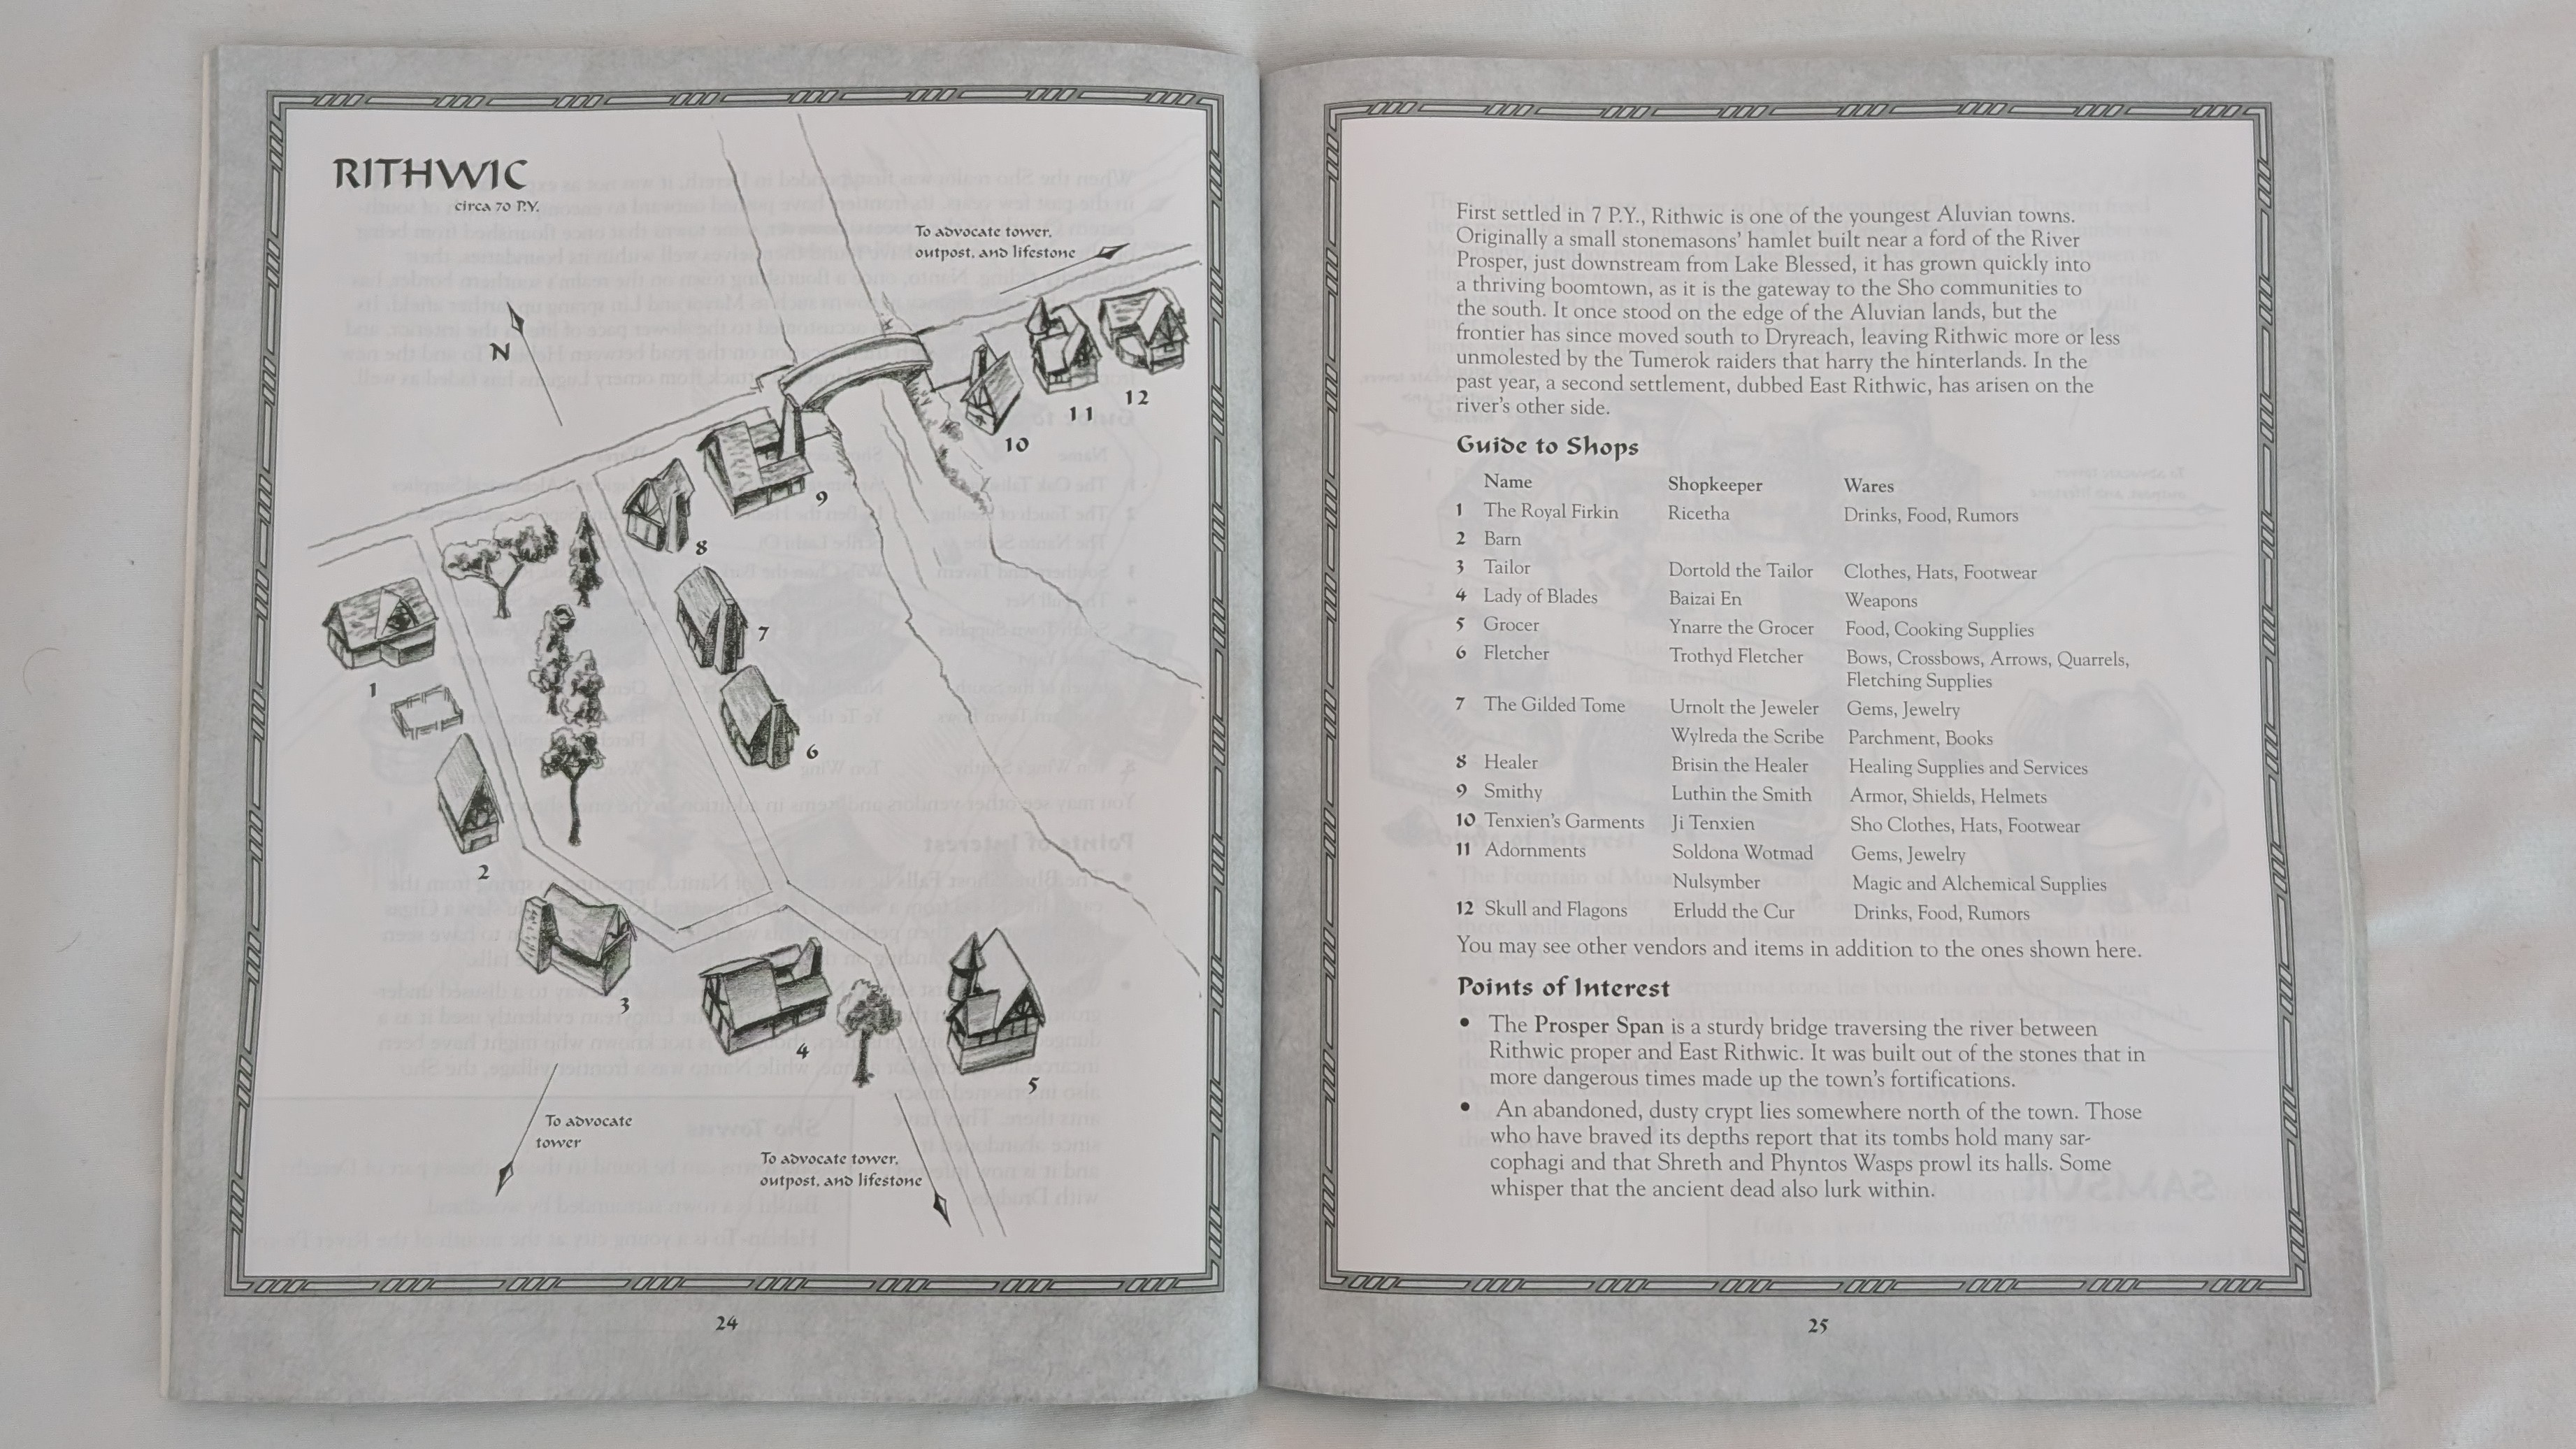 RITHWIC
circa 70 P.Y.
To advocate tower,
outpost, and lifestone
N
12
11
10
9
8
7
1
6
2
3
4
5
To advocate
tower
To advocate tower,
outpost, and lifestone
24
First settled in 7 P.Y., Rithwic is one of the youngest Aluvian towns.
Originally a small stonemasons' hamlet built near a ford of the River
Prosper, just downstream from Lake Blessed, it has grown quickly into
a thriving boomtown, as it is the gateway to the Sho communities to
the south. It once stood on the edge of the Aluvian lands, but the
frontier has since moved south to Dryreach, leaving Rithwic more or less
unmolested by the Tumerok raiders that harry the hinterlands. In the
past year, a second settlement, dubbed East Rithwic, has arisen on the
river's other side.
Guide to Shops
Name Shopkeeper Wares
1 The Royal Firkin Ricetha Drinks, Food, Rumors
2 Barn
3 Tailor Dortold the Tailor Clothes, Hats, Footwear
4 Lady of Blades Baizai En Weapons
5 Grocer Ynarre the Grocer Food, Cooking Supplies
6 Fletcher Trothyd Fletcher Bows, Crossbows, Arrows, Quarrels,
Fletching Supplies
7 The Gilded Tome Urnolt the Jeweler Gems, Jewelry
Wylreda the Scribe Parchment, Books
8 Healer Brisin the Healer Healing Supplies and Services
9 Smithy Luthin the Smith Armor, Shields, Helmets
10 Tenxien's Garments Ji Tenxien Sho Clothes, Hats, Footwear
11 Adornments Soldona Wotmad Gems, Jewelry
Nulsymber Magic and Alchemical Supplies
12 Skull and Flagons Erludd the Cur Drinks, Food, Rumors
You may see other vendors and items in addition to the ones shown here.
Points of Interest
• The Prosper Span is a sturdy bridge traversing the river between
Rithwic proper and East Rithwic. It was built out of the stones that in
more dangerous times made up the town's fortifications.
• An abandoned, dusty crypt lies somewhere north of the town. Those
who have braved its depths report that its tombs hold many sar-
cophagi and that Shreth and Phyntos Wasps prowl its halls. Some
whisper that the ancient dead also lurk within.
25